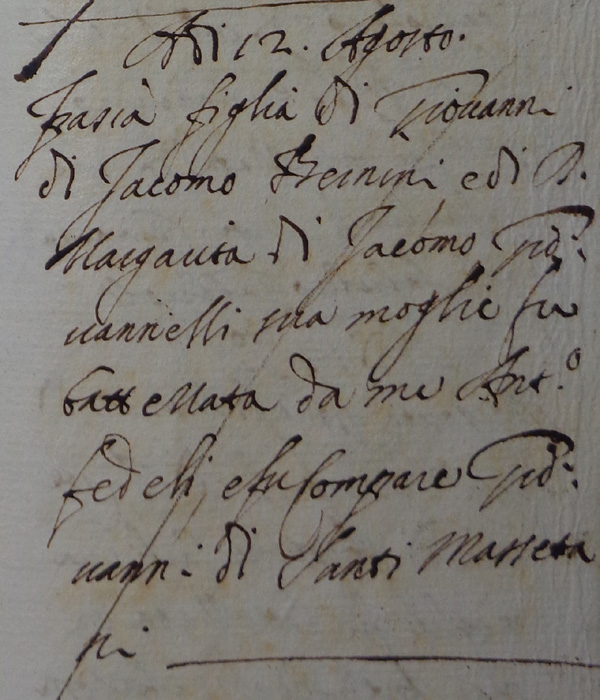 Adi 12. Agosto.
figlia di Giouanni
di Jacomo Bernini e di D.
Margarita di Jacomo Gio-
uannelli sua moglie fu
battezzata da me Ant.º
fedeli e fu Compare Gio-
uanni di Santi Masseta
ni